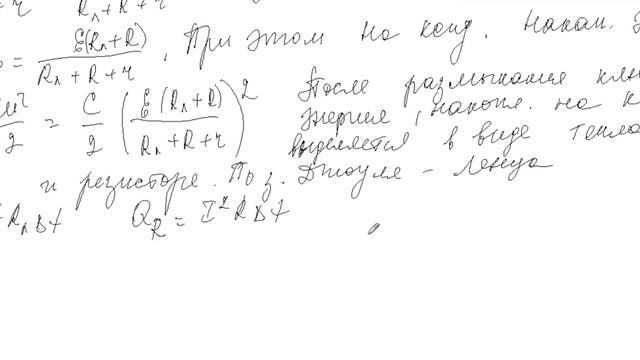 R_Л + R + r
= ℰ(R_Л + R) / (R_Л + R + r) , При этом на конд. накоп.
/2 = C/2 (ℰ(R_Л + R) / (R_Л + R + r))² После размыкания клю
энергия, накопл. на к
выделяется в виде тепла
и резисторе. По з. Джоуля - Ленца
R_Л Δt Q_R = I² R Δt